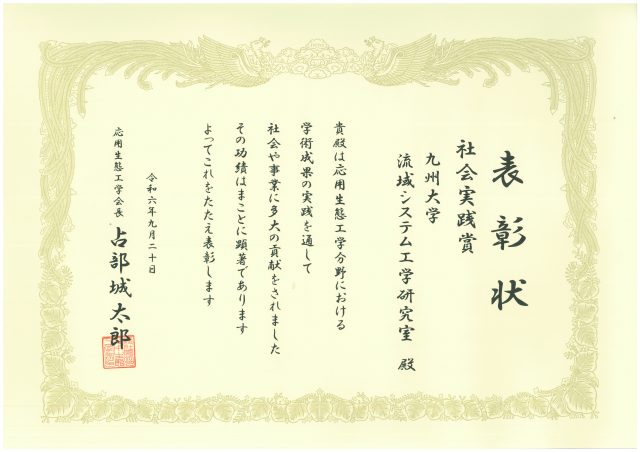 表彰状
社会実践賞
九州大学
流域システム工学研究室 殿
貴殿は応用生態工学分野における
学術成果の実践を通して
社会や事業に多大の貢献をされました
その功績はまことに顕著であります
よってこれをたたえ表彰します
令和六年九月二十日
応用生態工学会長
占部城太郎